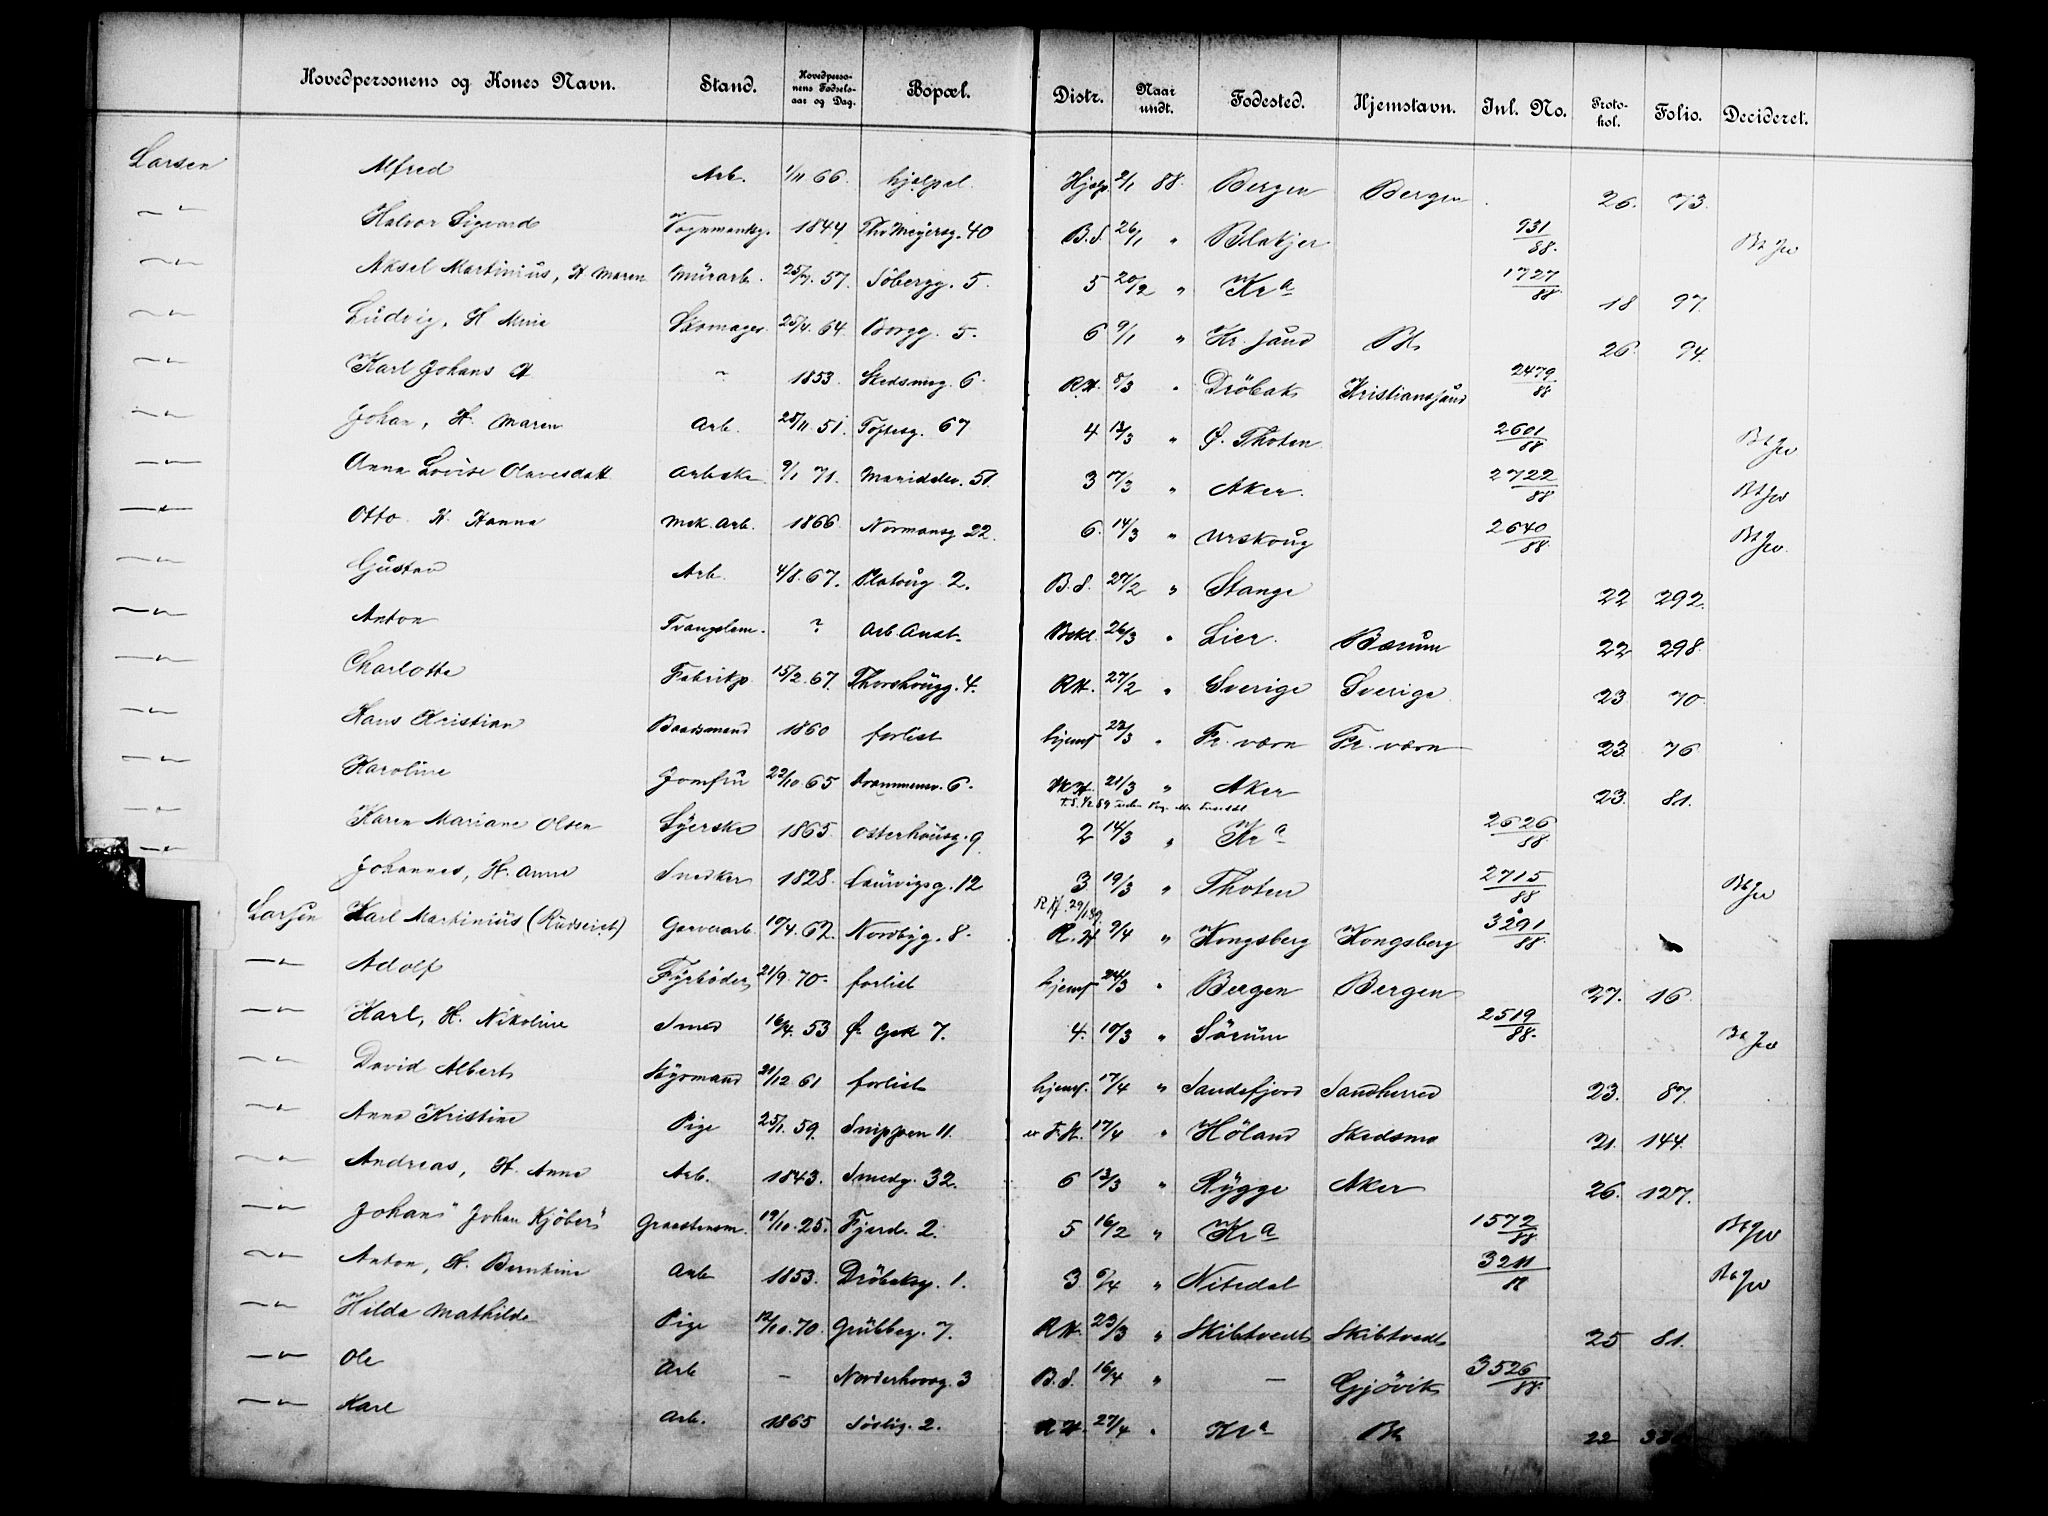 Hovedpersonens og Kones Navn. Stand. Hovedpersonens Fødselsaar og Dag. Bopæl. Distr. Naar undt. Fødested. Hjemstavn. Inl. No. Protokol. Folio. Decideret.
Larsen Alfred Arb. 1/11 66. hjelpel. Hjelp. 2/1 88. Bergen Bergen 26. 73.
—"— Halvor Sigvard Vognmandsg. 1844. Th. Meyersg. 40 B.S. 26/1 " Blakjer 931/88.
—"— Aksel Martinius, H. Maren Murarb. 25/7. 57. Söbergg. 5. 5 20/2 " Kra 1727/88. 18 97.
—"— Ludvig, H Mina Skomager. 25/4. 64. Borgg. 5. 6 9/1 " Kr. sand 26. 94.
—"— Karl Johans 1853. Skedsmog. 6. R.H. 8/3 " Dröbak Kristianssand 2479/88
—"— Johan, H. Maren Arb. 25/11 51. Toftesg. 67 4 13/3 " Ø. Thoten. 2601/88
—"— Anna Lovise Olavesdatt Arbske 9/1 71. Maridalsv. 51. 3 17/3 " Aker. 2722/88
—"— Otto. H. Hanna Mek. Arb. 1866. Normansg 22. 6. 14/3 " Urskoug 2640/88.
—"— Gustav Arb. 4/8. 67. Platoug. 2. B.S. 27/2 " Stange 22 292.
—"— Anton Tvangslem. ? Arb. Anst. 26/3 " Lier. Bærum 22 298.
—"— Charlotte Fabrikp. 15/2. 67. Thorshougg. 4. R.H. 27/2 " Sverige Sverige 23 70.
—"— Hans Kristian Baadsmand 1860 forlist hjems 22/3 " Fr. værn Fr. værn 23. 76
—"— Karoline Jomfru 22/10. 65 Drammensv. 6. 21/3 " Aker 23. 81.
—"— Karen Mariane Olsen Syerske 1865. Osterhausg. 9 2 14/3 " Kra 2626/88
—"— Johannes, H. Anne Snedker 1828. Laurvigsg. 12 3 19/3 " Thoten 2715/88
Larsen Karl Martinius (Rudseiet) Garverarb. 10/4. 62. Nordbyg. 8. R.H. 9/4 " Kongsberg Kongsberg 3291/88.
—"— Adolf Fyrböder 21/9. 70. forlist hjems 24/3 " Bergen Bergen 27. 16.
—"— Karl, H. Nikoline Smed 16/4. 53 Ø. Gde 7. 4. 10/3 " Sörum 2519/88.
—"— David Alberts Styrmand 21/12 61 forlist hjems. 17/4 " Sandefjord Sandherred 23. 87.
—"— Anna Kristine Pige 25/1. 59. Snippen 11. 17/4 " Höland Skedsmo 21. 144.
—"— Andreas, H. Anne Arb. 1843. Smedg. 32. 6 13/3 " Rygge Aker 26. 127.
—"— Johan "Johan Kjöber" Graastensm. 19/10. 25. Fjerd. 2. 5 16/2 " Kra 1572/88
—"— Anton, H. Berntine Arb 1853. Dröbaksg. 1. 3 6/4 " Nitedal 3211/88
—"— Hilda Mathilde Pige 12/10. 70. Grübbeg. 7. R.H. 23/3 " Skibtvedt Skibtvedt 25 81.
—"— Ole Arb — Norderhovsg. 3 B.S. 16/4 " — Gjövik 3526/88.
—"— Karl Arb. 1865 Sörlig. 2. R.H. 27/4 " Kra 22